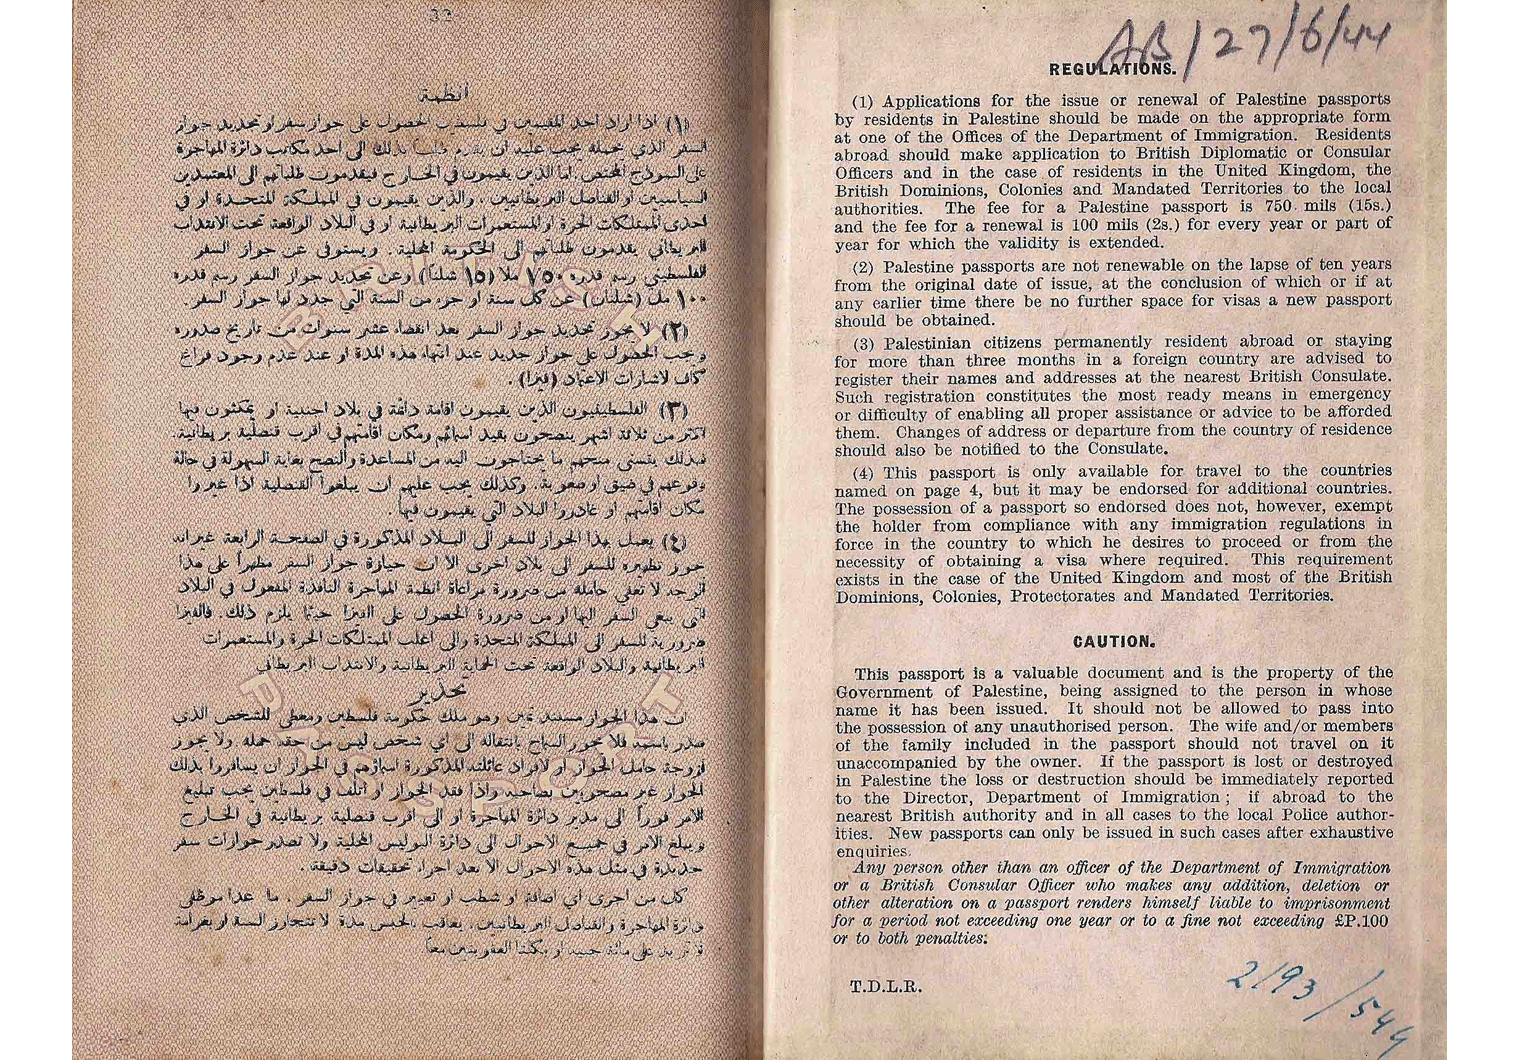 32
أنظمة
(١) اذا اراد احد المقيمين في فلسطين الحصول على جواز سفر او تجديد جواز
السفر الذي يحمله يجب عليه ان يقدم طلباً بذلك الى احد مكاتب دائرة المهاجرة
على النموذج المختص. اما الذين يقيمون في الخارج فيقدمون طلباتهم الى المعتمدين
السياسيين او القناصل البريطانيين. والذين يقيمون في المملكة المتحدة او في
احدى الممتلكات الحرة او المستعمرات البريطانية او في البلاد الواقعة تحت الانتداب
البريطاني يقدمون طلباتهم الى الحكومة المحلية. ويستوفى عن جواز السفر
الفلسطيني رسم قدره ٧٥٠ ملا (١٥ شلناً) وعن تجديد جواز السفر رسم قدره
١٠٠ مل (شلنان) عن كل سنة او جزء من السنة التي جدد لها جواز السفر.
(٢) لا يجوز تجديد جواز السفر بعد انقضاء عشر سنوات من تاريخ صدوره
ويجب الحصول على جواز جديد عند انتهاء هذه المدة او عند عدم وجود فراغ
كاف لاشارات الاعتماد (فيزا).
(٣) الفلسطينيون الذين يقيمون اقامة دائمة في بلاد اجنبية او يمكثون فيها
اكثر من ثلاثة اشهر ينصحون بقيد اسمائهم ومكان اقامتهم في اقرب قنصلية بريطانية.
فبذلك يتسنى منحهم ما يحتاجون اليه من المساعدة والنصح بغاية السهولة في حالة
وقوعهم في ضيق او صعوبة. وكذلك يجب عليهم ان يبلغوا القنصلية اذا غيروا
مكان اقامتهم او غادروا البلاد التي يقيمون فيها.
(٤) يعمل بهذا الجواز للسفر الى البلاد المذكورة في الصفحة الرابعة غير انه
يجوز تظهيره للسفر الى بلاد اخرى الا ان حيازة جواز السفر مظهراً على هذا
الوجه لا تعفي حامله من ضرورة مراعاة انظمة المهاجرة النافذة المفعول في البلاد
التي يبغي السفر اليها او من ضرورة الحصول على الفيزا حيثما يلزم ذلك. فالفيزا
ضرورية للسفر الى المملكة المتحدة والى اغلب الممتلكات الحرة والمستعمرات
البريطانية والبلاد الواقعة تحت الحماية البريطانية والانتداب البريطاني
تحذير
ان هذا الجواز مستند ثمين وهو ملك حكومة فلسطين ومعطى للشخص الذي
صدر باسمه فلا يجوز السماح بانتقاله الى اي شخص ليس من حقه حمله. ولا يجوز
لزوجة حامل الجواز او لافراد عائلته المذكورة اسماؤهم في الجواز ان يسافروا بذلك
الجواز غير مصحوبين بصاحبه واذا فقد الجواز او اتلف في فلسطين يجب تبليغ
الامر فوراً الى مدير دائرة المهاجرة او الى اقرب قنصلية بريطانية في الخارج
ويبلغ الامر في جميع الاحوال الى دائرة البوليس المحلية ولا تصدر جوازات سفر
جديدة في مثل هذه الاحوال الا بعد اجراء تحقيقات دقيقة
كل من اجرى اي اضافة او شطب او تغيير في جواز السفر، ما عدا موظفي
دائرة المهاجرة والقناصل البريطانيين، يعاقب بالحبس مدة لا تتجاوز السنة او بغرامة
لا تزيد على مائة جنيه او بكلتا العقوبتين معاً
AB/27/6/44
REGULATIONS.
(1) Applications for the issue or renewal of Palestine passports
by residents in Palestine should be made on the appropriate form
at one of the Offices of the Department of Immigration. Residents
abroad should make application to British Diplomatic or Consular
Officers and in the case of residents in the United Kingdom, the
British Dominions, Colonies and Mandated Territories to the local
authorities. The fee for a Palestine passport is 750 mils (15s.)
and the fee for a renewal is 100 mils (2s.) for every year or part of
year for which the validity is extended.
(2) Palestine passports are not renewable on the lapse of ten years
from the original date of issue, at the conclusion of which or if at
any earlier time there be no further space for visas a new passport
should be obtained.
(3) Palestinian citizens permanently resident abroad or staying
for more than three months in a foreign country are advised to
register their names and addresses at the nearest British Consulate.
Such registration constitutes the most ready means in emergency
or difficulty of enabling all proper assistance or advice to be afforded
them. Changes of address or departure from the country of residence
should also be notified to the Consulate.
(4) This passport is only available for travel to the countries
named on page 4, but it may be endorsed for additional countries.
The possession of a passport so endorsed does not, however, exempt
the holder from compliance with any immigration regulations in
force in the country to which he desires to proceed or from the
necessity of obtaining a visa where required. This requirement
exists in the case of the United Kingdom and most of the British
Dominions, Colonies, Protectorates and Mandated Territories.
CAUTION.
This passport is a valuable document and is the property of the
Government of Palestine, being assigned to the person in whose
name it has been issued. It should not be allowed to pass into
the possession of any unauthorised person. The wife and/or members
of the family included in the passport should not travel on it
unaccompanied by the owner. If the passport is lost or destroyed
in Palestine the loss or destruction should be immediately reported
to the Director, Department of Immigration; if abroad to the
nearest British authority and in all cases to the local Police author-
ities. New passports can only be issued in such cases after exhaustive
enquiries.
Any person other than an officer of the Department of Immigration
or a British Consular Officer who makes any addition, deletion or
other alteration on a passport renders himself liable to imprisonment
for a period not exceeding one year or to a fine not exceeding £P.100
or to both penalties.
T.D.L.R.
2/93/544